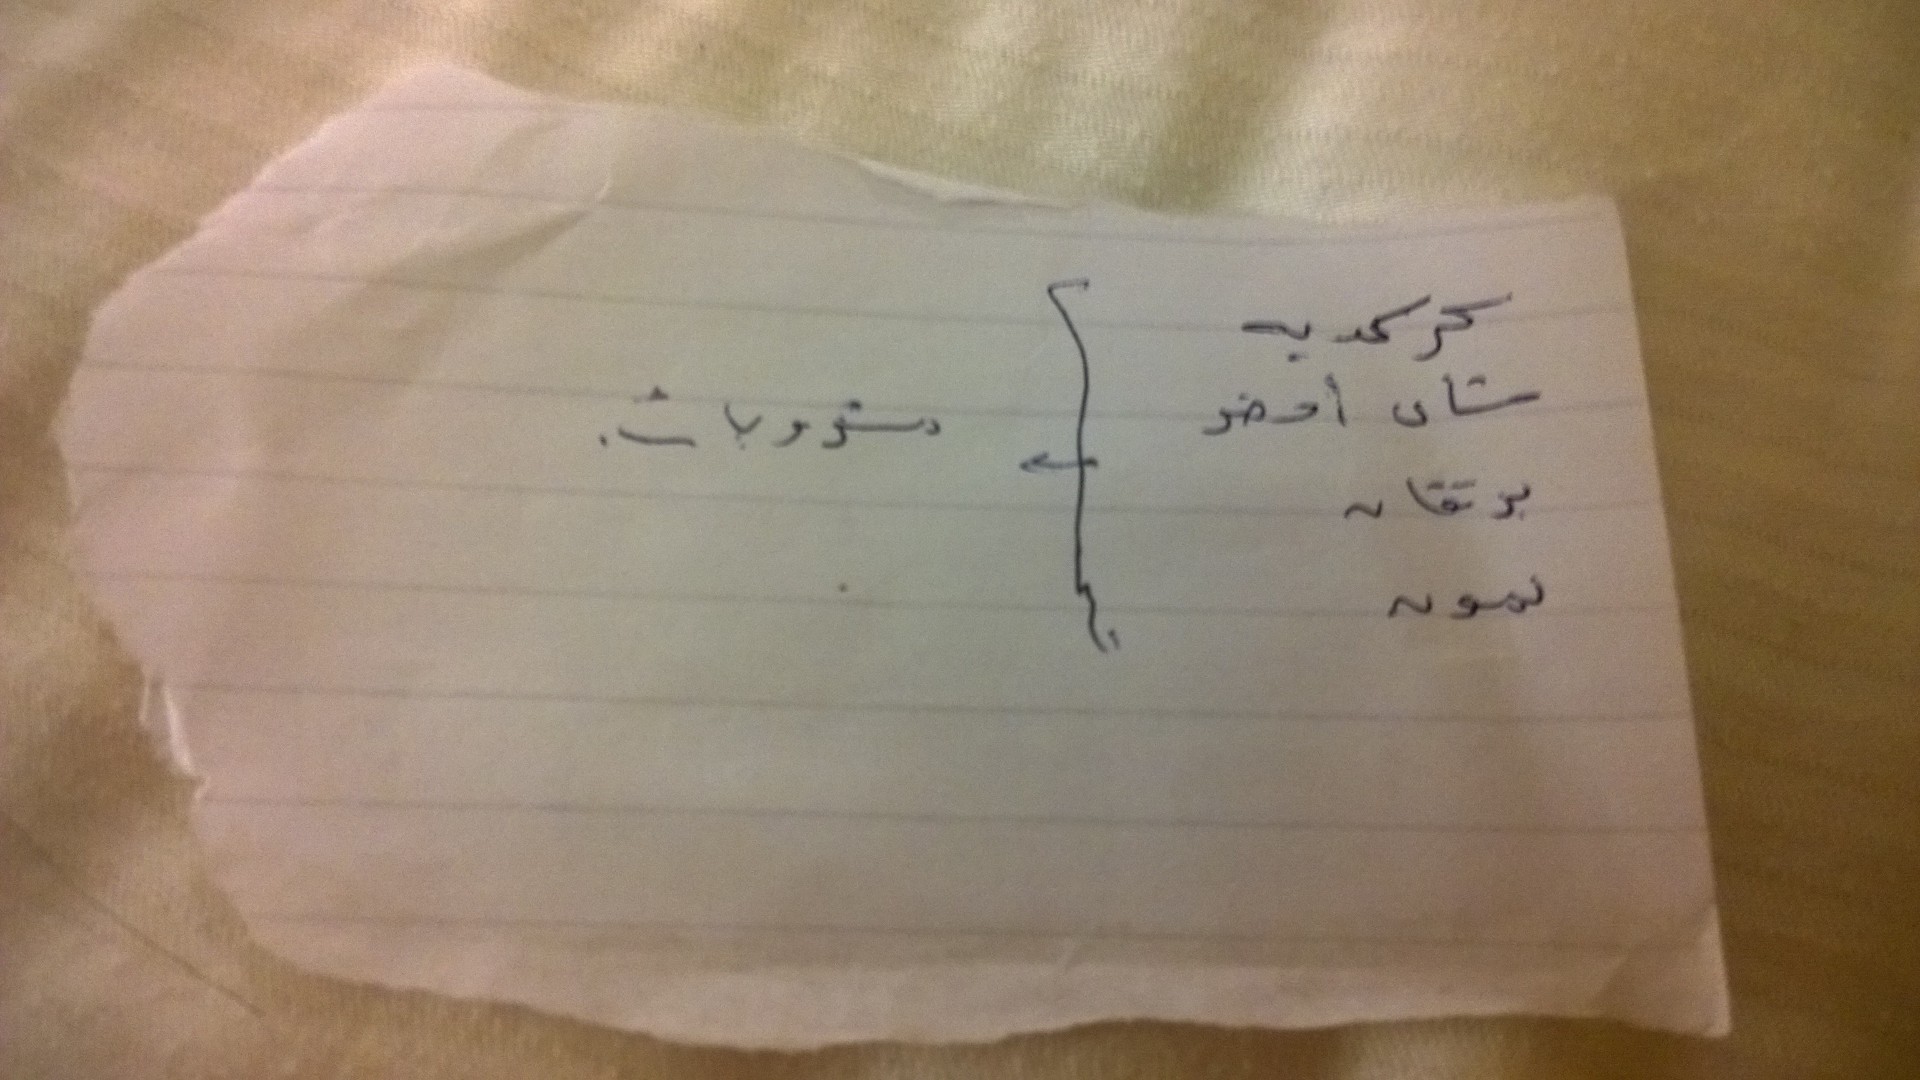 كركديه
شاى أخضر
برتقان
ليمون
مشروبات.